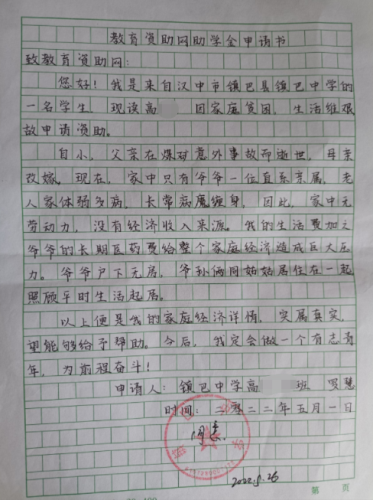 教育资助网助学金申请书
致教育资助网:
您好!我是来自汉中市镇巴县镇巴中学的
一名学生,现读高 因家庭贫困,生活维艰
故申请资助。
自小,父亲在煤矿意外事故而逝世,母亲
改嫁。现在,家中只有爷爷一位直系亲属,老
人家体弱多病,长常病魔缠身,因此,家中无
劳动力,没有经济收入来源。我的生活费加之
爷爷的长期医药费给整个家庭经济造成巨大压
力。爷爷户下无房,爷孙俩同姑姑居住在一起
照顾平时生活起居。
以上便是我的家庭经济详情,实属真实,
望能够给予帮助。今后,我定会做一个有志青
年,为前程奋斗!
申请人:镇巴中学高 班
时间:二零二二年五月一日
2022.8.26
第 页